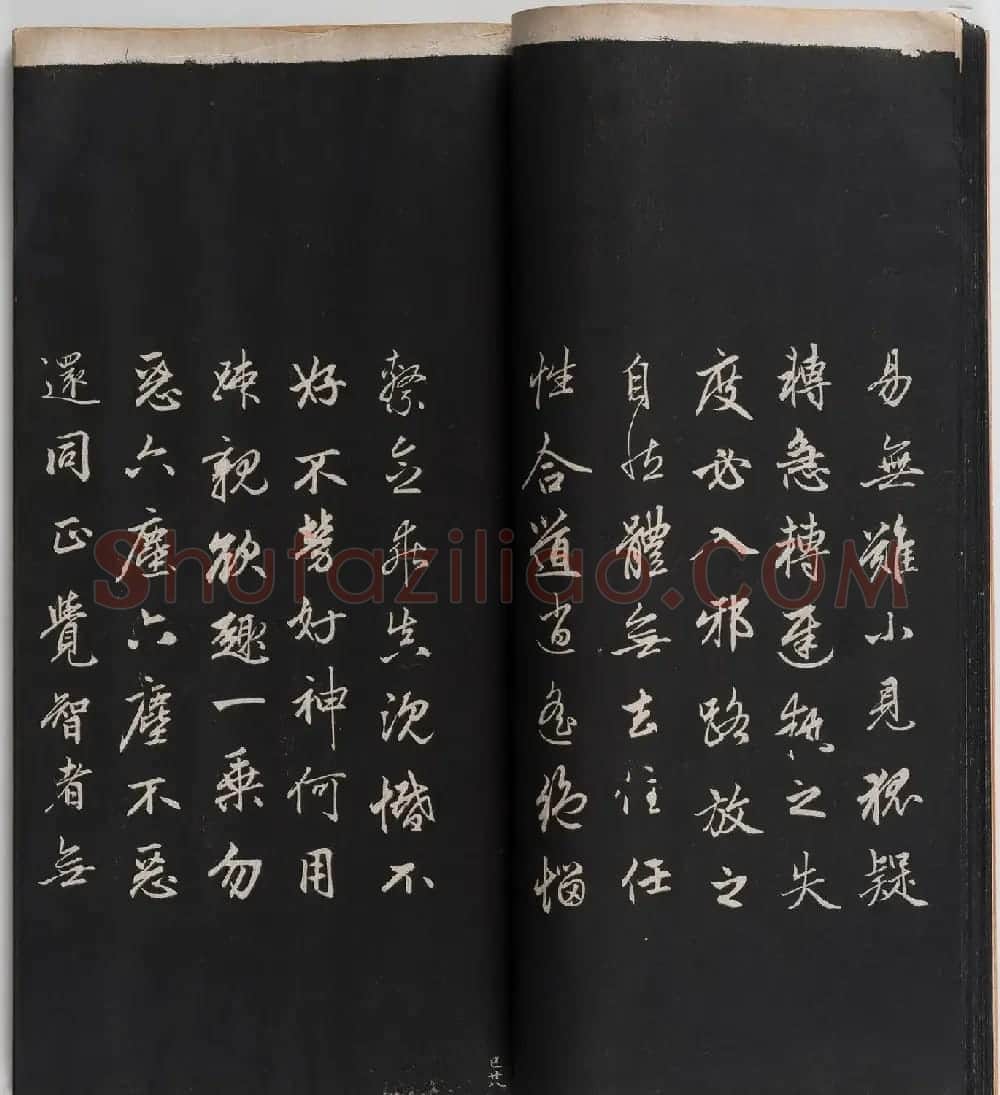 易無難小見狐疑
轉急轉遲執之失
度必入邪路放之
自然體無去住任
性合道逍遙絕惱
繫念乖真沉惛不
好不勞好神何用
疎親欲趣一乘勿
惡六塵六塵不惡
還同正覺智者無
巳廿八
Shufaziliao.COM